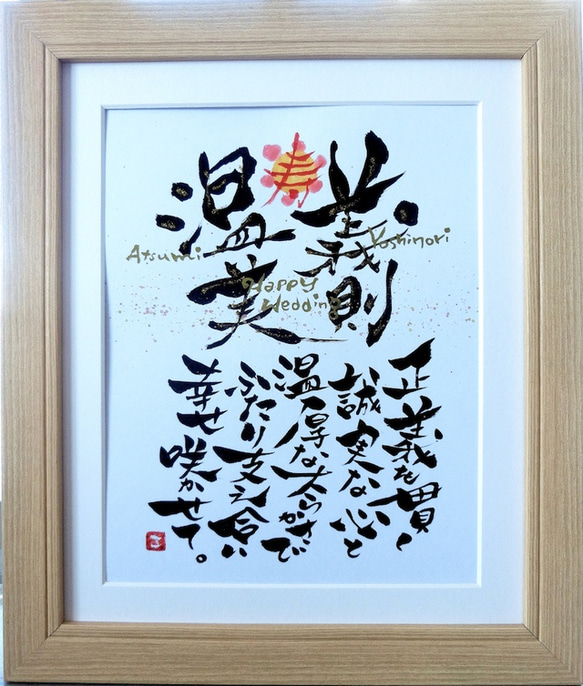 義則
寿
温英
Yoshinori
Atsumi
Happy
Wedding
正義を貫く
誠実な心と
温厚な大らかさで
ふたり支え合い
幸せ咲かせて。